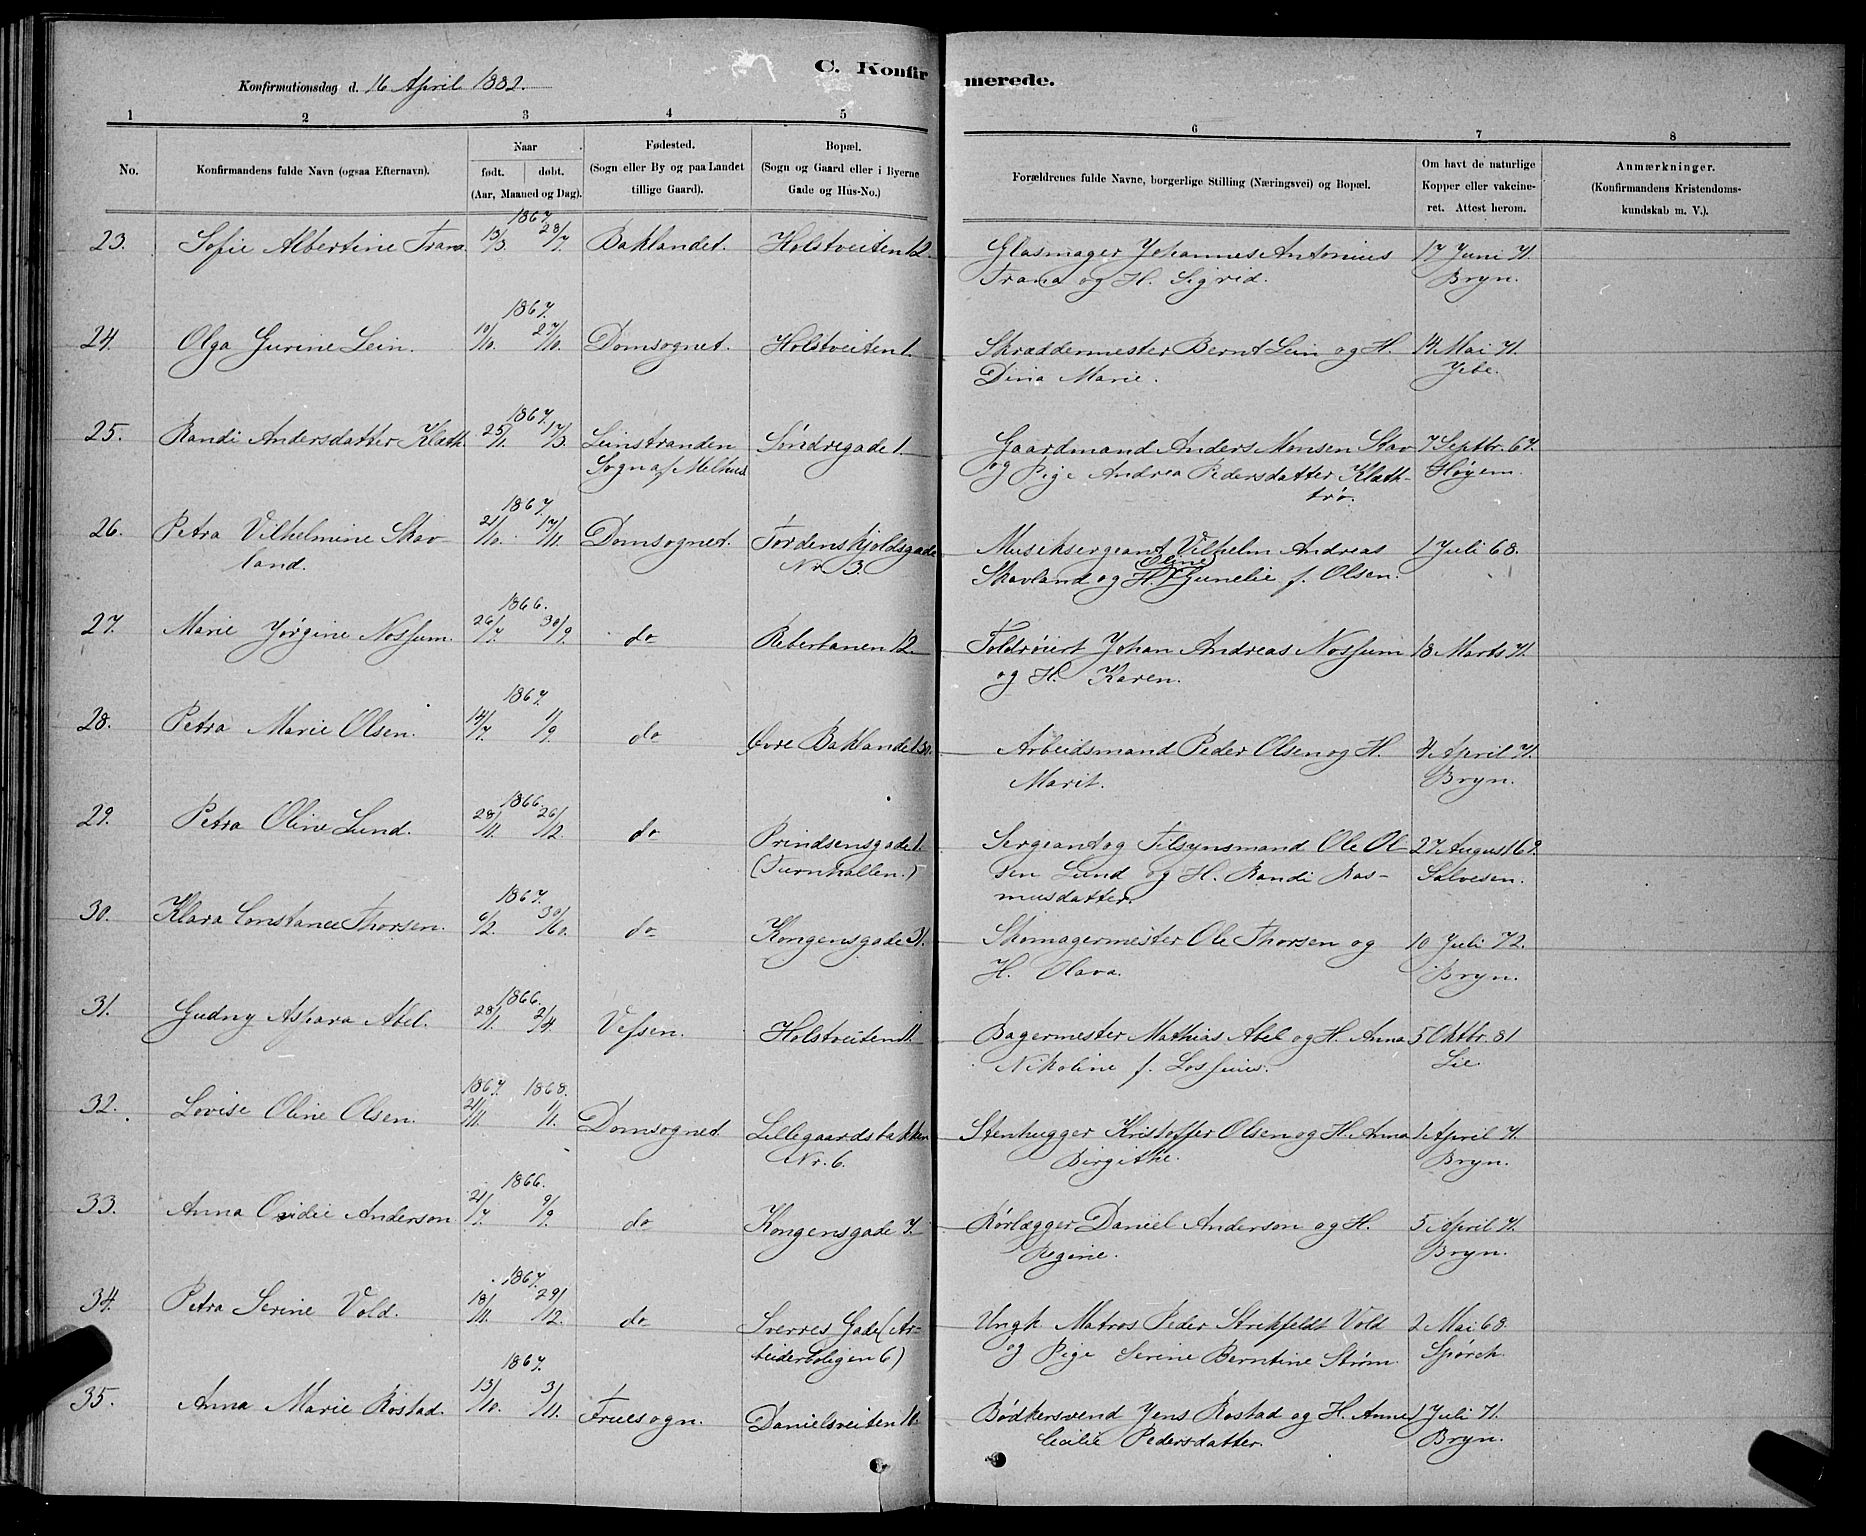 C. Konfirmerede.
Konfirmationsdag d. 16 April 1882.
1 2 3 4 5 6 7 8
No. Konfirmandens fulde Navn (ogsaa Efternavn). Naar født. døbt. (Aar, Maaned og Dag). Fødested. (Sogn eller By og paa Landet tillige Gaard). Bopæl. (Sogn og Gaard eller i Byerne Gade og Hus-No.) Forældrenes fulde Navne, borgerlige Stilling (Næringsvei) og Bopæl. Om havt de naturlige Kopper eller vakcineret. Attest herom. Anmærkninger. (Konfirmandens Kristendomskundskab m. V.).
1867.
23. Sofie Albertine Trana 13/3. 28/7. Baklandet. Holstveiten 12. Glasmager Johannes Antonius 17 Juni 71.
Trana og H. Sigrid. Bryn.
1867.
24. Olga Gurine Lein. 10/10. 27/10. Domsognet. Holstveiten 1. Skræddermester Bernt Lein og H. 14 Mai 71.
Dina Marie. Jebe.
1867.
25. Randi Andersdatter Klæth. 25/1. 17/3. Leinstranden Søndregade 1. Gaardmand Anders Monsen Stav 7 Septbr. 67.
Sogn af Melhus og Pige Andrea Pedersdatter Klæth- Høyem.
trø.
1867.
26. Petra Vilhelmine Skav- 21/10. 17/11. Domsognet. Tordenskjoldsgade Musiksergeant Vilhelm Andreas 1 Juli 68.
land. Nr 3. Skavland og H. Oline Gunelie f. Olsen.
1866.
27. Marie Jørgine Nossum. 26/7. 30/9. do Reberbanen 12. Toldrøiert Johan Andreas Nossum 18 Marts 71.
og H. Karen.
1867.
28. Petra Marie Olsen. 14/7. 1/9. do Øvre Baklandet 30. Arbeidsmand Peder Olsen og H. 4 April 71.
Marit. Bryn.
1866.
29. Petra Oline Lund. 28/11. 26/12. do Prindsensgade 1. Sergeant og Tilsynsmand Ole Ol- 27 August 69.
(Turnhallen.) sen Lund og H. Randi Ras- Salvesen.
musdatter.
1867.
30. Klara Constance Thorsen. 6/2. 30/60. do Kongensgade 31. Skomagermester Ole Thorsen og 10 Juli 72.
H. Olava. Bryn.
1866.
31. Gudny Aspara Abel. 28/1. 2/4. Vefsen. Holstveiten 11. Bagermester Mathias Abel og H. Anna 5 Oktbr. 81
Nikoline f. Lossius. Lie.
1867. 1868.
32. Lovise Oline Olsen. 21/11. 1/1. Domsognet. Lillegaardsbakken Stenhugger Kristoffer Olsen og H. Anna 1 April 71.
Nr. 6. Birgithe. Bryn.
1866.
33. Anna Ovidie Anderson 21/7. 9/9. do Kongensgade 7. Rørlægger Daniel Anderson og H. 5 April 71.
Regine. Bryn.
1867.
34. Petra Serine Vold. 18/11. 29/12. do Sverres Gade (Ar- Ungk. Matros Peder Strikfeldt Vold 2 Mai 68.
beiderboligen 6) og Pige Serine Berntine Strøm. Spørck.
1867.
35. Anna Marie Rostad. 13/10. 3/11. Fruesogn. Danielsveiten 10. Bødkersvend Jens Rostad og H. Anne 1 Juli 71.
Cecilie Pedersdatter. Bryn.